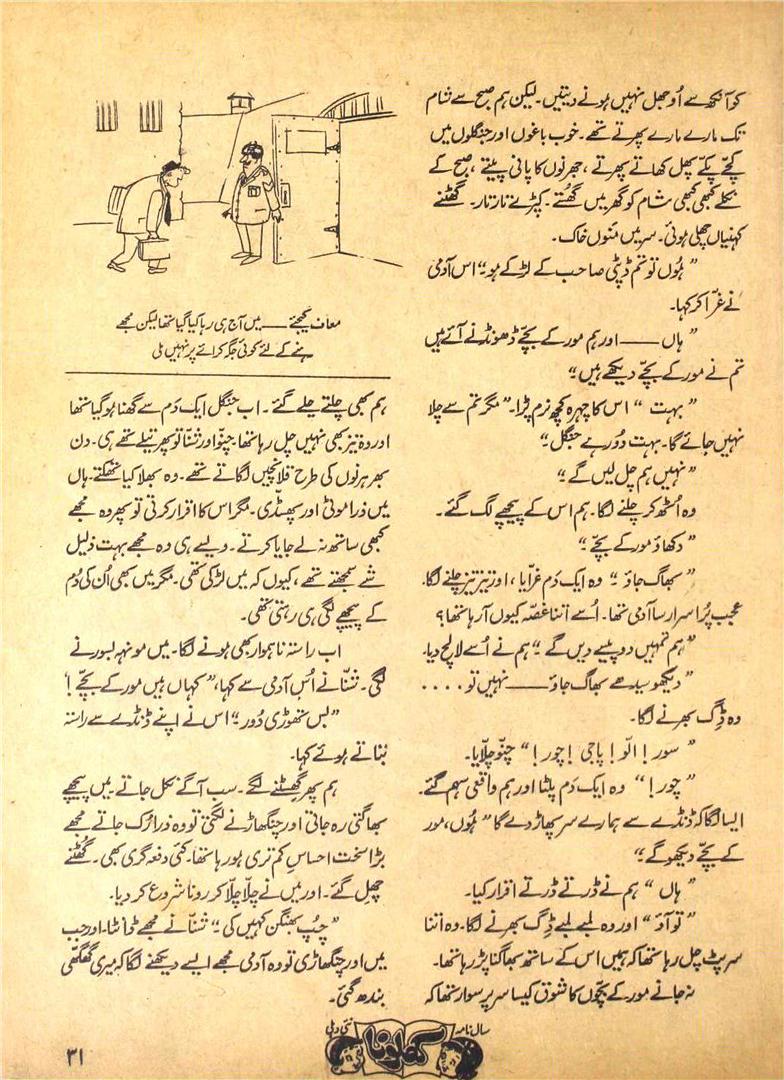 کو آنکھ سے اُوجھل نہیں ہونے دیتیں۔ لیکن ہم صبح سے شام
تک مارے مارے پھرتے تھے۔ خوب باغوں اور جنگلوں میں
کچّے پکّے پھل کھاتے پھرتے، جھرنوں کا پانی پیتے، صبح کے
نکلے کبھی کبھی شام کو گھر میں گھُستے۔ کپڑے تار تار۔ گھٹنے
کہنیاں چھلی ہوئی۔ سر میں منوں خاک۔
”ہُوں تو تم ڈپٹی صاحب کے لڑکے ہو“ اس آدمی
نے غرّا کر کہا۔
”ہاں —— اور ہم مور کے بچّے ڈھونڈنے آئے ہیں
تم نے مور کے بچّے دیکھے ہیں“
”بہت“ اس کا چہرہ کچھ نرم پڑا۔ ”مگر تم سے چلا
نہیں جائے گا۔ بہت دُور ہے جنگل“
”نہیں ہم چل لیں گے“
وہ اُٹھ کر چلنے لگا۔ ہم اس کے پیچھے لگ گئے۔
”دکھاؤ مور کے بچّے“
”بھاگ جاؤ“ وہ ایک دم غرّایا، اور تیز تیز چلنے لگا۔
عجیب پُراسرار سا آدمی تھا۔ اُسے اتنا غصّہ کیوں آ رہا تھا؟
”ہم تمہیں دو پیسے دیں گے“ ہم نے اُسے لالچ دیا۔
”دیکھو سیدھے بھاگ جاؤ —— نہیں تو ....
وہ ڈِگ بھرنے لگا۔
”سور! الّو! پاجی! چور!“ چنّو چلّایا۔
”چور!“ وہ ایک دَم پلٹا اور ہم واقعی سہم گئے۔
ایسا لگا کہ ڈنڈے سے ہمارے سر پھاڑ دے گا ”ہُوں، مور
کے بچّے دیکھو گے“
”ہاں“ ہم نے ڈرتے ڈرتے اقرار کیا۔
”تو آؤ“ اور وہ لمبے لمبے ڈِگ بھرنے لگا۔ وہ اتنا
سرپٹ چل رہا تھا کہ ہمیں اس کے ساتھ بھاگنا پڑ رہا تھا۔
نہ جانے مور کے بچّوں کا شوق کیسا سر پر سوار تھا کہ
معاف کیجئے —— میں آج ہی رہا کیا گیا تھا لیکن مجھے
رہنے کے لئے کوئی جگہ کرائے پر نہیں ملی
ہم بھی چلتے چلے گئے۔ اب جنگل ایک دَم سے گھنا ہو گیا تھا
اور وہ تیز بھی نہیں چل رہا تھا۔ چنّو اور ننّا تو پھرتیلے تھے ہی۔ دن
بھر ہرنوں کی طرح قلانچیں لگاتے تھے۔ وہ بھلا کیا تھکتے۔ ہاں
میں ذرا موٹی اور پھسڈّی۔ مگر اس کا اقرار کرتی تو پھر وہ مجھے
کبھی ساتھ نہ لے جایا کرتے۔ ویسے ہی وہ مجھے بہت ذلیل
شے سمجھتے تھے، کیوں کہ میں لڑکی تھی۔ مگر میں بھی اُن کی دُم
کے پیچھے لگی ہی رہتی تھی۔
اب راستہ ناہموار بھی ہونے لگا۔ میں مونہہ بسورنے
لگی۔ ننّا نے اُس آدمی سے کہا، ”کہاں ہیں مور کے بچّے!
”بس تھوڑی دُور“ اس نے اپنے ڈنڈے سے راستہ
بناتے ہوئے کہا۔
ہم پھر گھسٹنے لگے۔ سب آگے نکل جاتے میں پیچھے
بھاگتی رہ جاتی اور چنگھاڑنے لگتی تو وہ ذرا رُک جاتے مجھے
بڑا سخت احساسِ کم تری ہو رہا تھا۔ کئی دفعہ گری بھی۔ گھُٹنے
چھِل گئے۔ اور میں نے چلّا چلّا کر رونا شروع کر دیا۔
”چپ بھنگن کہیں کی“ ننّا نے مجھے ڈانٹا۔ اور جب
میں اور چنگھاڑی تو وہ آدمی مجھے ایسے دیکھنے لگا کہ میری گھگّھی
بندھ گئی۔
سال نامہ کھلونا نئی دہلی
۳۱